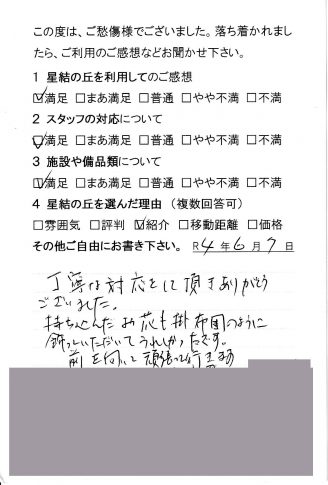 この度は、ご愁傷様でございました。落ち着かれまし
たら、ご利用のご感想などお聞かせ下さい。
1 星結の丘を利用してのご感想
☑満足 □まあ満足 □普通 □やや不満 □不満
2 スタッフの対応について
☑満足 □まあ満足 □普通 □やや不満 □不満
3 施設や備品類について
☑満足 □まあ満足 □普通 □やや不満 □不満
4 星結の丘を選んだ理由（複数回答可）
□雰囲気 □評判 ☑紹介 □移動距離 □価格
その他ご自由にお書き下さい。 R4年6月7日
丁寧な対応をして頂きありがとう
ございました。
持ち込んだお花も掛布団のように
飾っていただいてうれしかったです。
前を向いて頑張って行きます